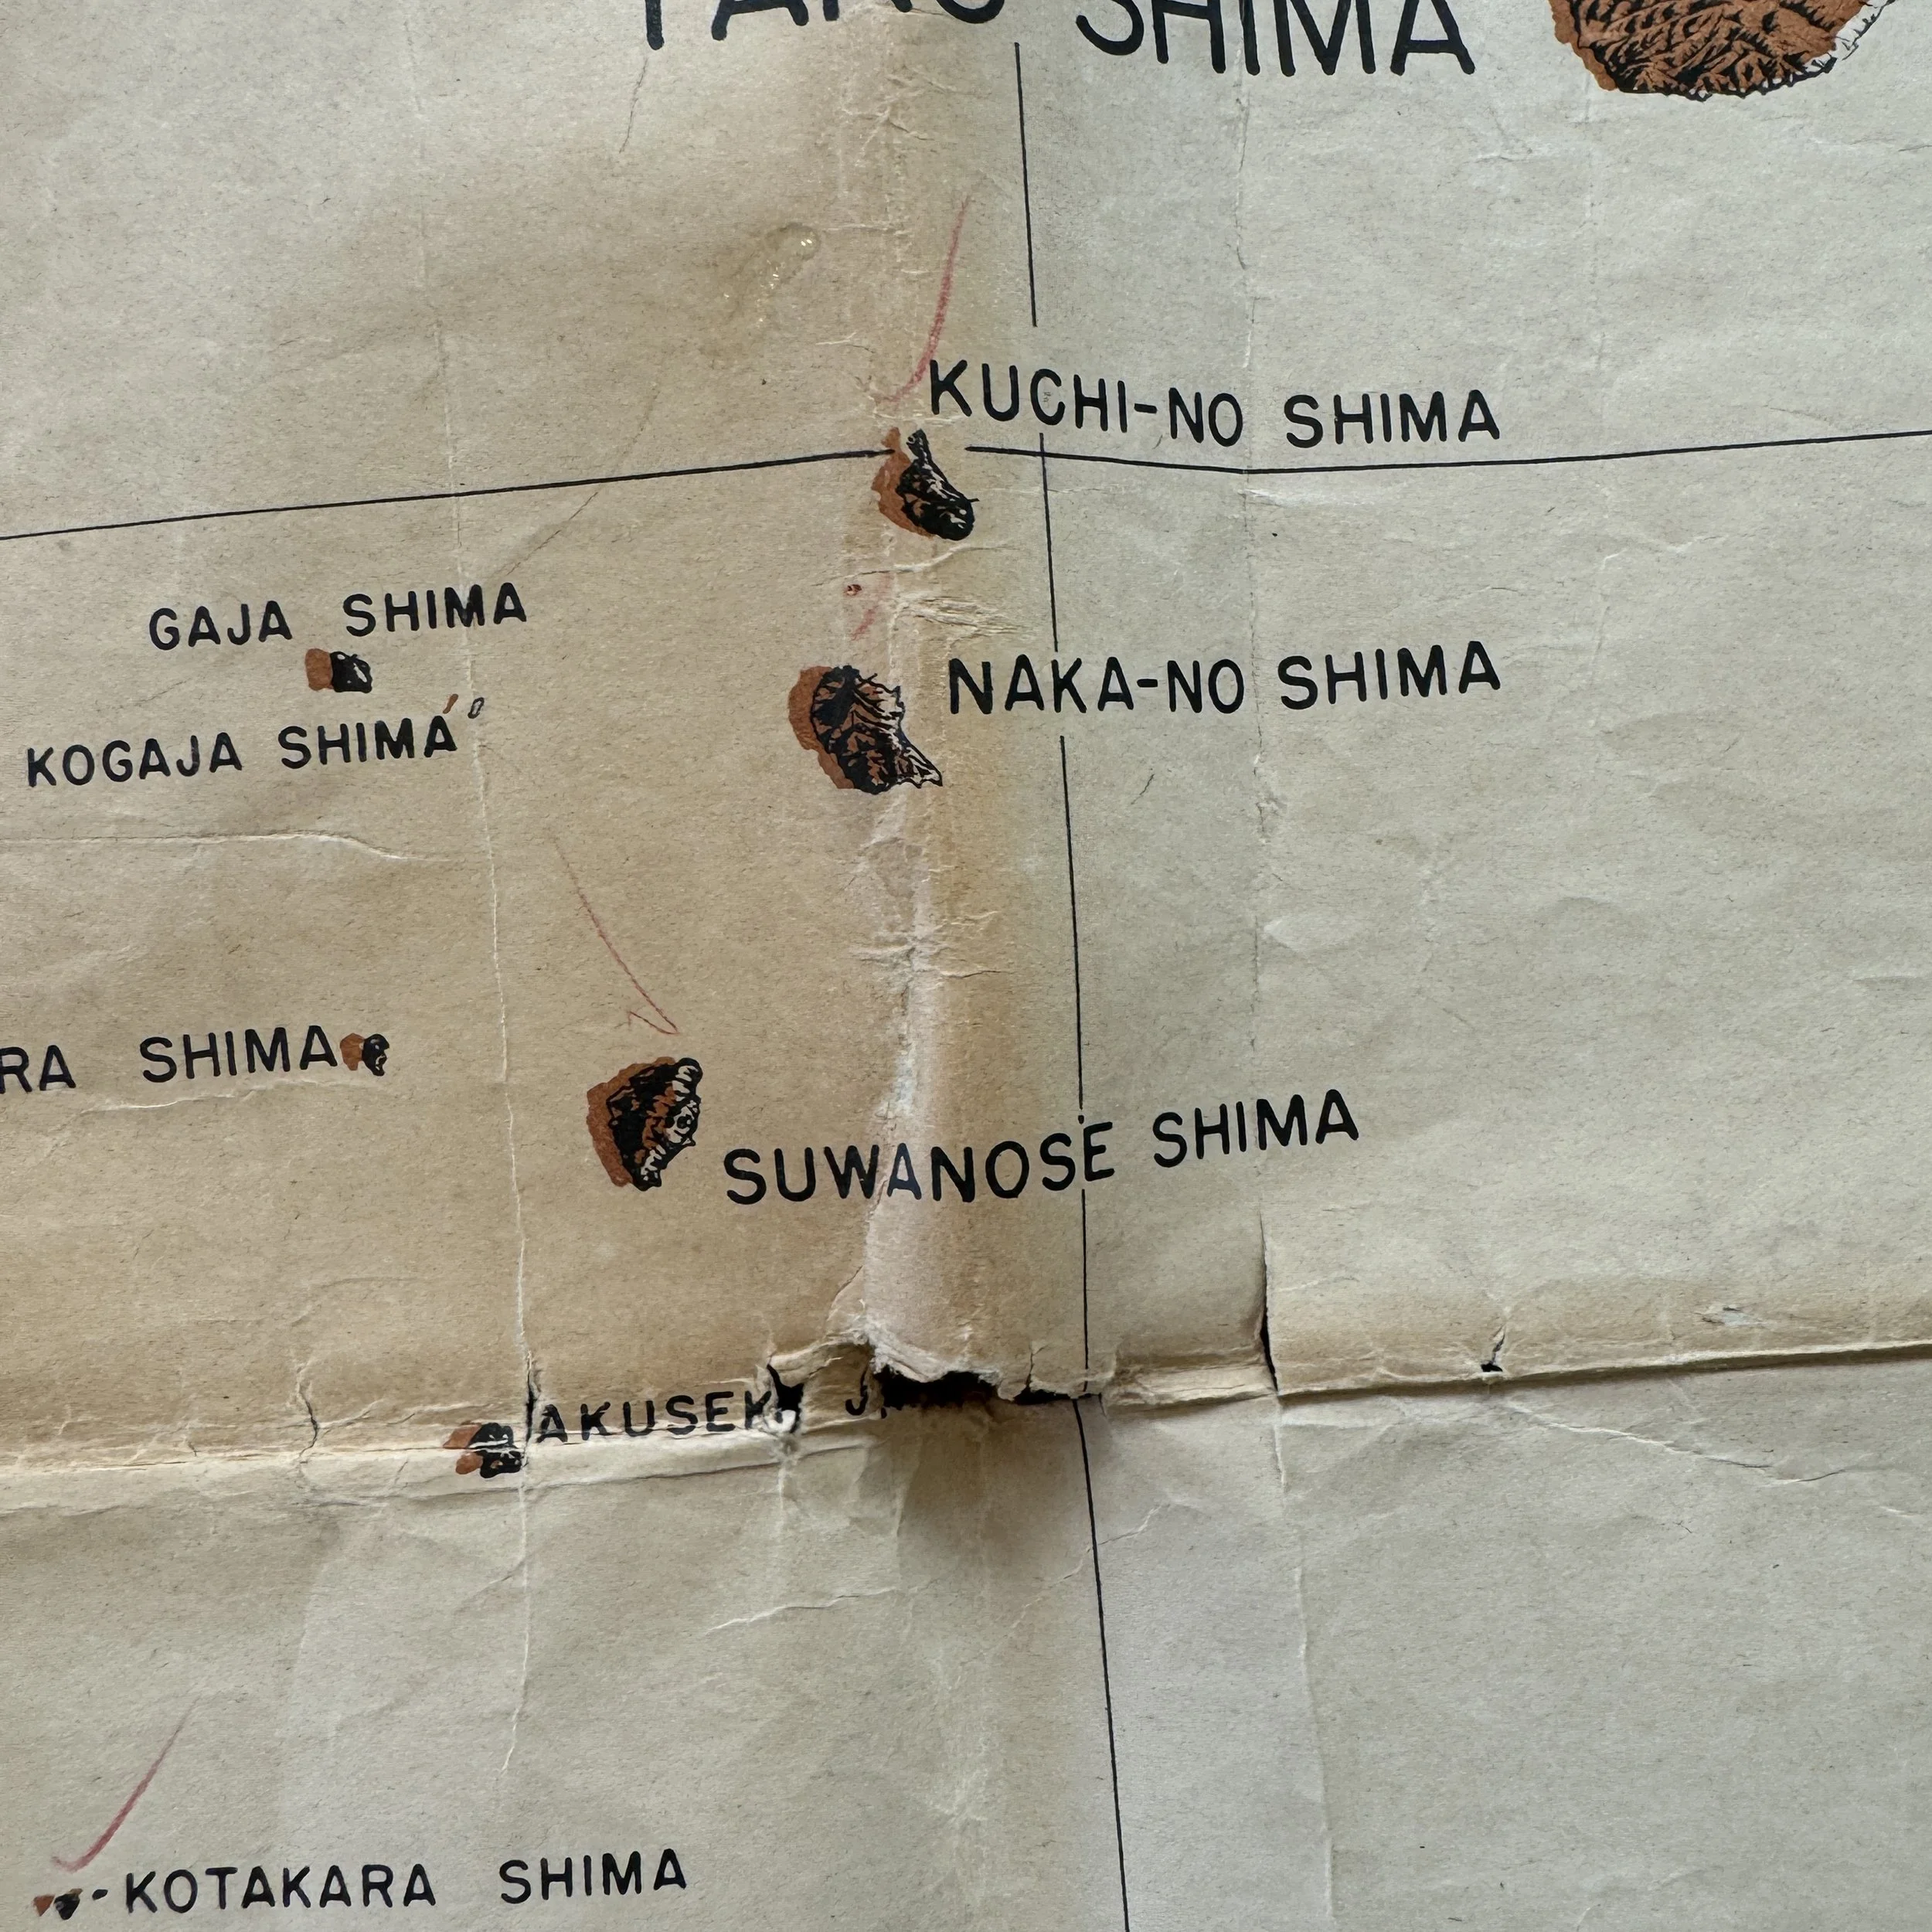 SHIMA
KUCHI-NO SHIMA
GAJA SHIMA
KOGAJA SHIMA
NAKA-NO SHIMA
SHIMA
SUWANOSE SHIMA
KOTAKARA SHIMA